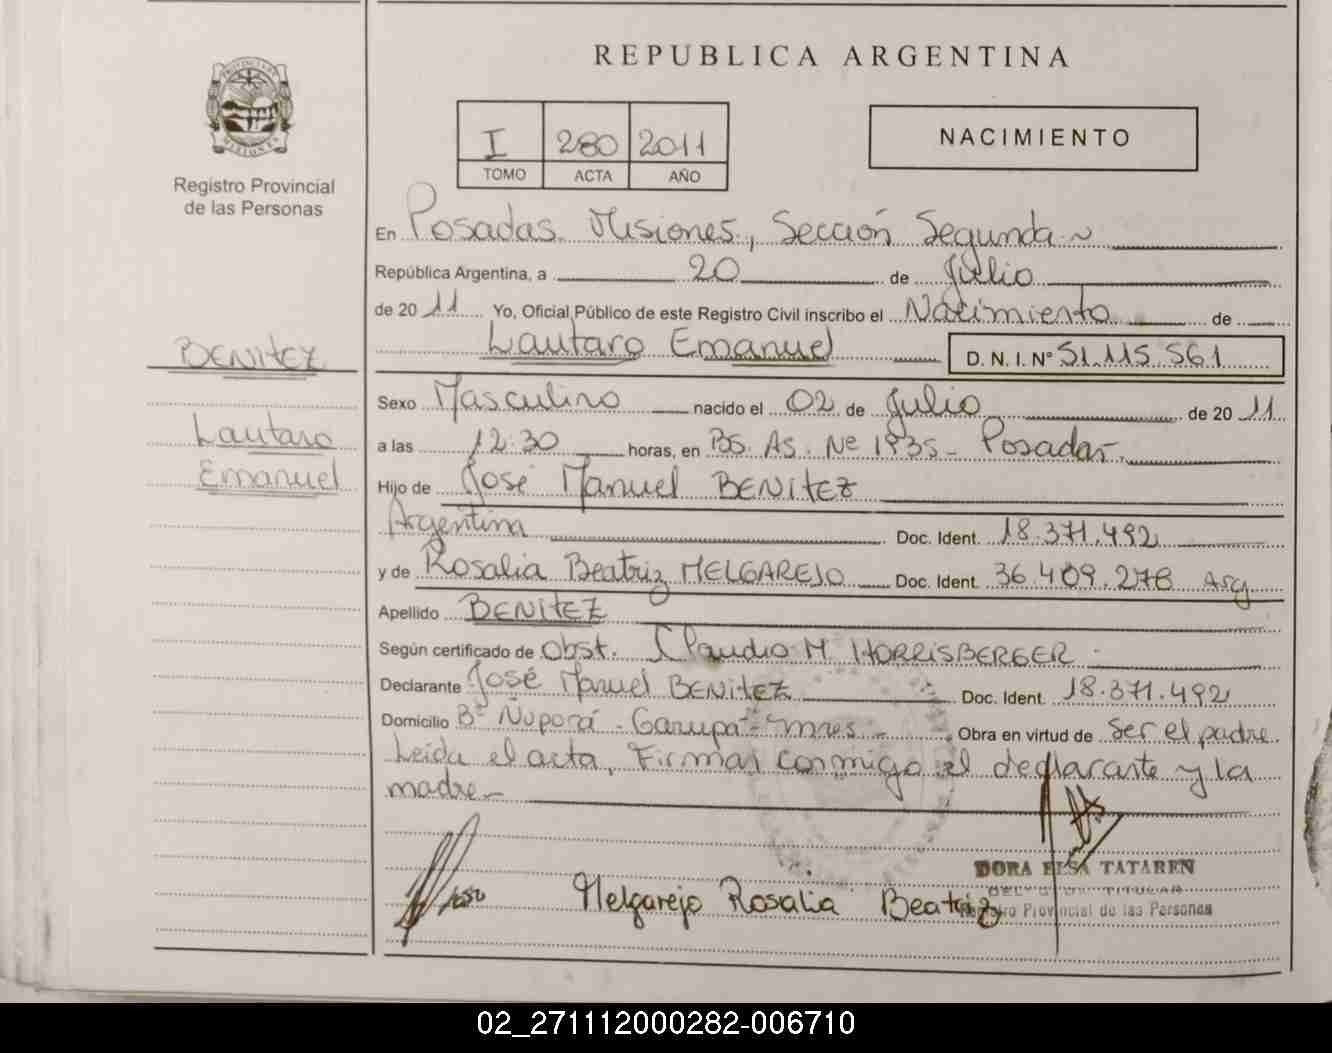 REPUBLICA ARGENTINA
PROVINCIA DE MISIONES
Registro Provincial
de las Personas
I 280 2011
TOMO ACTA AÑO
NACIMIENTO
En Posadas Misiones, Sección Segunda
República Argentina, a 20 de Julio
de 2011 Yo, Oficial Público de este Registro Civil inscribo el Nacimiento de
Lautaro Emanuel D. N. I. Nº 51.115.561
BENITEZ
Lautaro
Emanuel
Sexo Masculino nacido el 02 de Julio de 2011
a las 12:30 horas, en Bs. As. Nº 1935 - Posadas.
Hijo de José Manuel BENITEZ
Argentina Doc. Ident. 18.371.492
y de Rosalia Beatriz MELGAREJO Doc. Ident. 36.409.278 Arg
Apellido BENITEZ
Según certificado de Obst. Claudio M HORRISBERGER
Declarante José Manuel BENITEZ Doc. Ident. 18.371.492
Domicilio Bº Ñuporá - Garupá - Mnes - Obra en virtud de Ser el padre
Leida el acta, Firman conmigo el declarante y la
madre -
DORA ELSA TATAREN
TITULAR
Registro Provincial de las Personas
Melgarejo Rosalia Beatriz
02_271112000282-006710